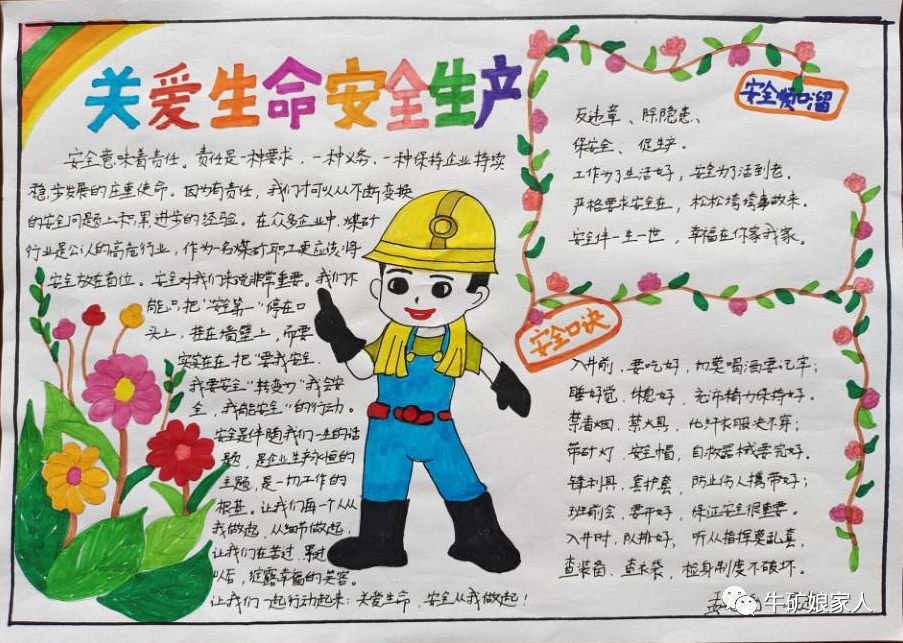 关爱生命安全生产
安全意味着责任。责任是一种要求、一种义务、一种保持企业持续
稳步发展的庄重使命。因为有责任，我们才可以从不断变换
的安全问题上积累进步的经验。在众多企业中，煤矿
行业是公认的高危行业，作为一名煤矿职工更应该将
安全放在首位。安全对我们来说非常重要。我们不
能只把“安全第一”停在口
头上，挂在墙壁上，而要
实实在在把“要我安全、
我要安全”转变为“我会安
全，我能安全”的行动。
安全是伴随我们一生的话
题，是企业生产永恒的
主题，是一切工作的
根基。让我们每个人从
我做起，从细节做起，
让我们在苦过、累过
以后，绽露幸福的笑容。
让我们一起行动起来：关爱生命，安全从我做起！
安全顺口溜
反违章、除隐患、
保安全、促生产。
工作为了生活好，安全为了活到老。
严格要求安全在，松松垮垮事故来。
安全伴一生一世，幸福在你家我家。
安全口诀
入井前，要吃好，如要喝酒要记牢；
睡好觉，休息好，充沛精力保持好。
禁香烟，禁火具，化纤衣服决不穿；
带矿灯，安全帽，自救器械要完好。
锋利具，套护套，防止伤人携带好；
班前会，要开好，保证安全很重要。
入井时，队排好，听从指挥莫乱套，
查装备，查衣袋，检身制度不破坏。
牛矿娘家人